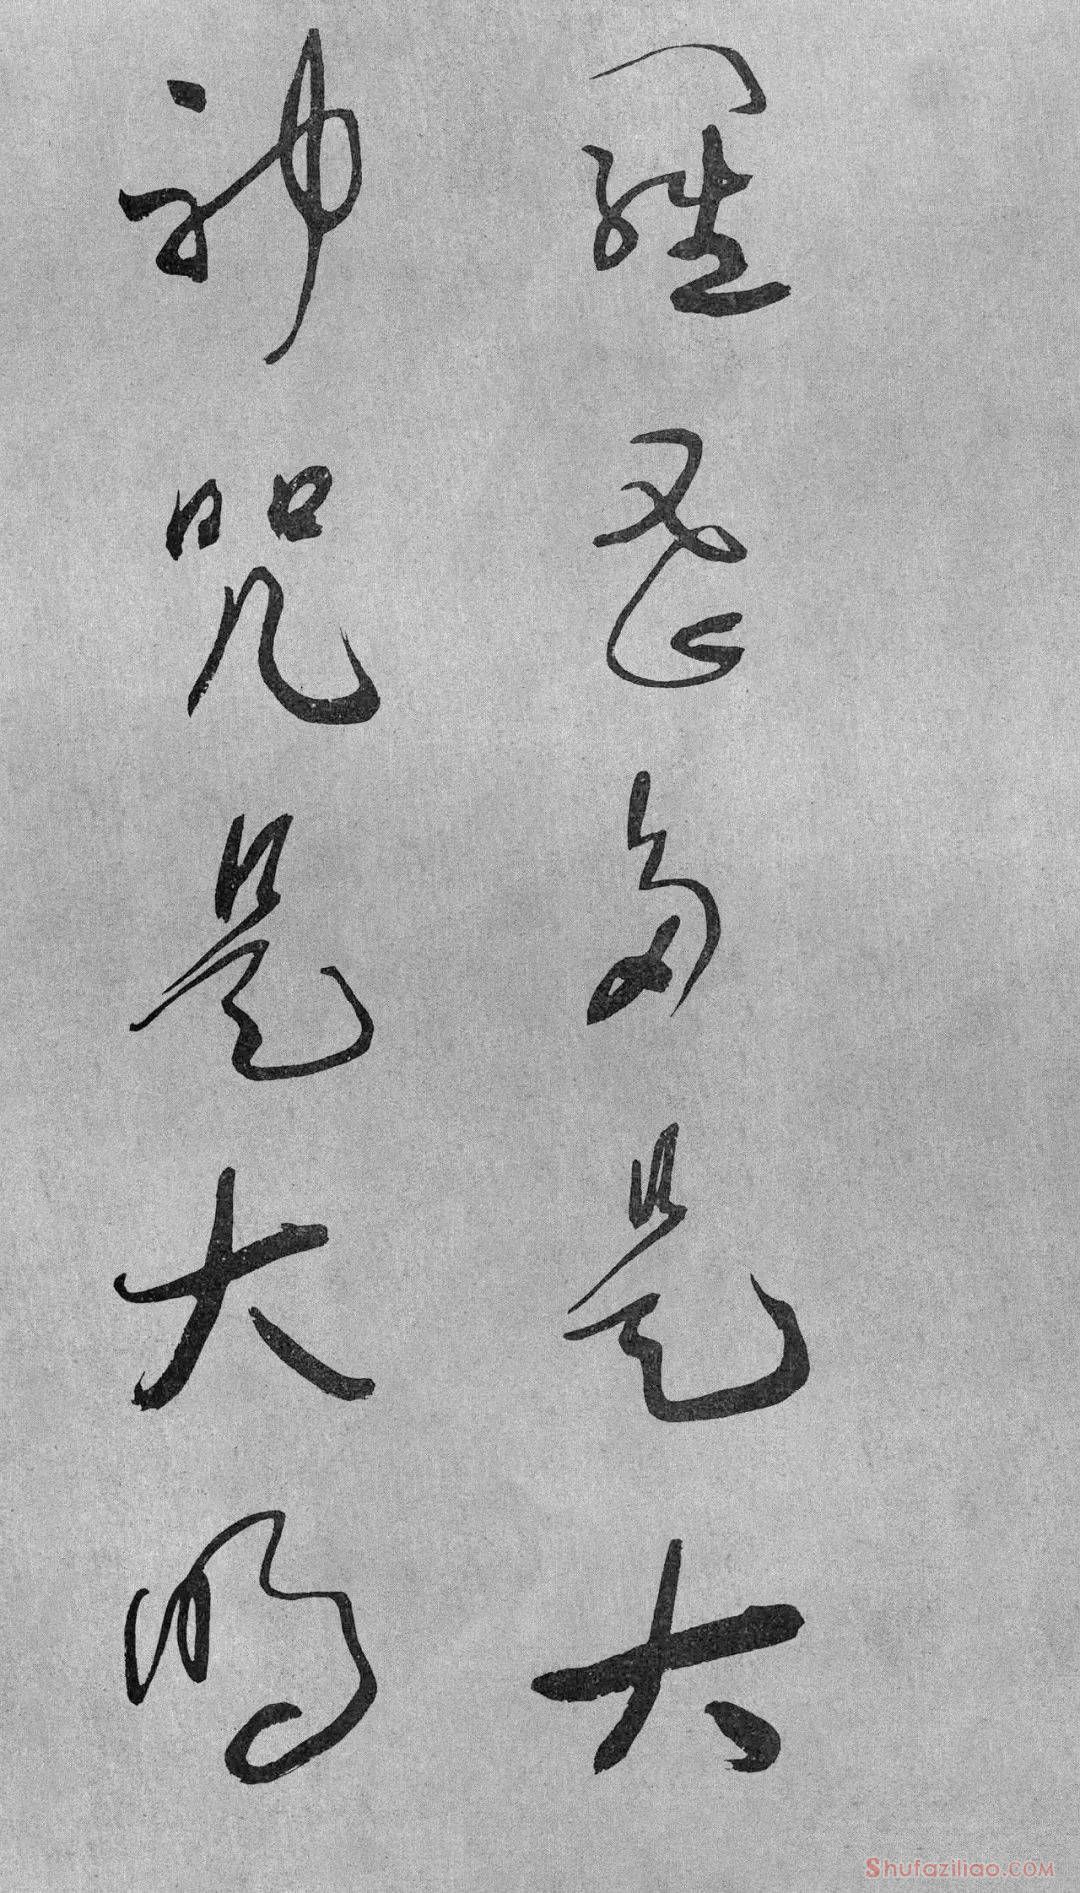 羅蜜多是大
神咒是大明
Shufaziliao.COM